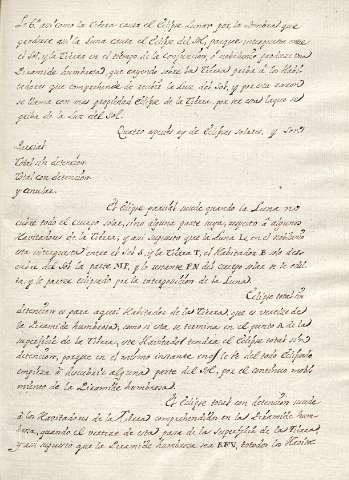 así como la Tierra causa el Eclipse Lunar por la sombra que
produce, así la Luna causa el Eclipse del Sol, porque interpuesta entre
el Sol, y la Tierra en el tiempo de la Conjuncion, o novilunio produce una
Piramide humbrosa, que cayendo sobre la Tierra priva à los Habi-
tadores que comprehende de recibir la luz del Sol, y por esa razon
se llama con mas propiedad Eclipse de la Tierra, por ser esta la que se
priva de la Luz del Sol.
Quatro especies ay de Eclipses solares, y son
Parcial
Total sin detencion
Total con detencion
y anular.
El Eclipse parcial sucede quando la Luna no
cubre todo el cuerpo solar, sino alguna parte suya, respecto à algunos
Havitadores de la Tierra, y asi supuesto que la Luna L, en el novilunio
sea interpuesta entre el Sol S, y la Tierra T, el Habitador B solo des-
cubre del Sol la parte MF, y lo restante FN del cuerpo solar se le ocul-
ta, y le parece eclipsado por la interposicion de la Luna.
Eclipse total sin
detencion es para aquel Habitador de la Tierra, que es vertice de
la Piramide humbrosa, como si esta se termina en el punto A de la
superficie de la Tierra, ese Havitador tendra el Eclipse total sin
detencion, porque en el mismo instante en q.e se vè del todo Eclipsado
empieza à descubrir alguna parte del Sol, por el continuo movi-
miento de la Piramide humbrosa.
El Eclipse total con detencion sucede
à los Havitadores de la Tierra comprehendidos en la Piramide hum-
brosa, quando el vertice de esta pasa de la superficie de la Tierra,
y asi supuesto que la Piramide humbrosa sea EFV, todos los Havita-